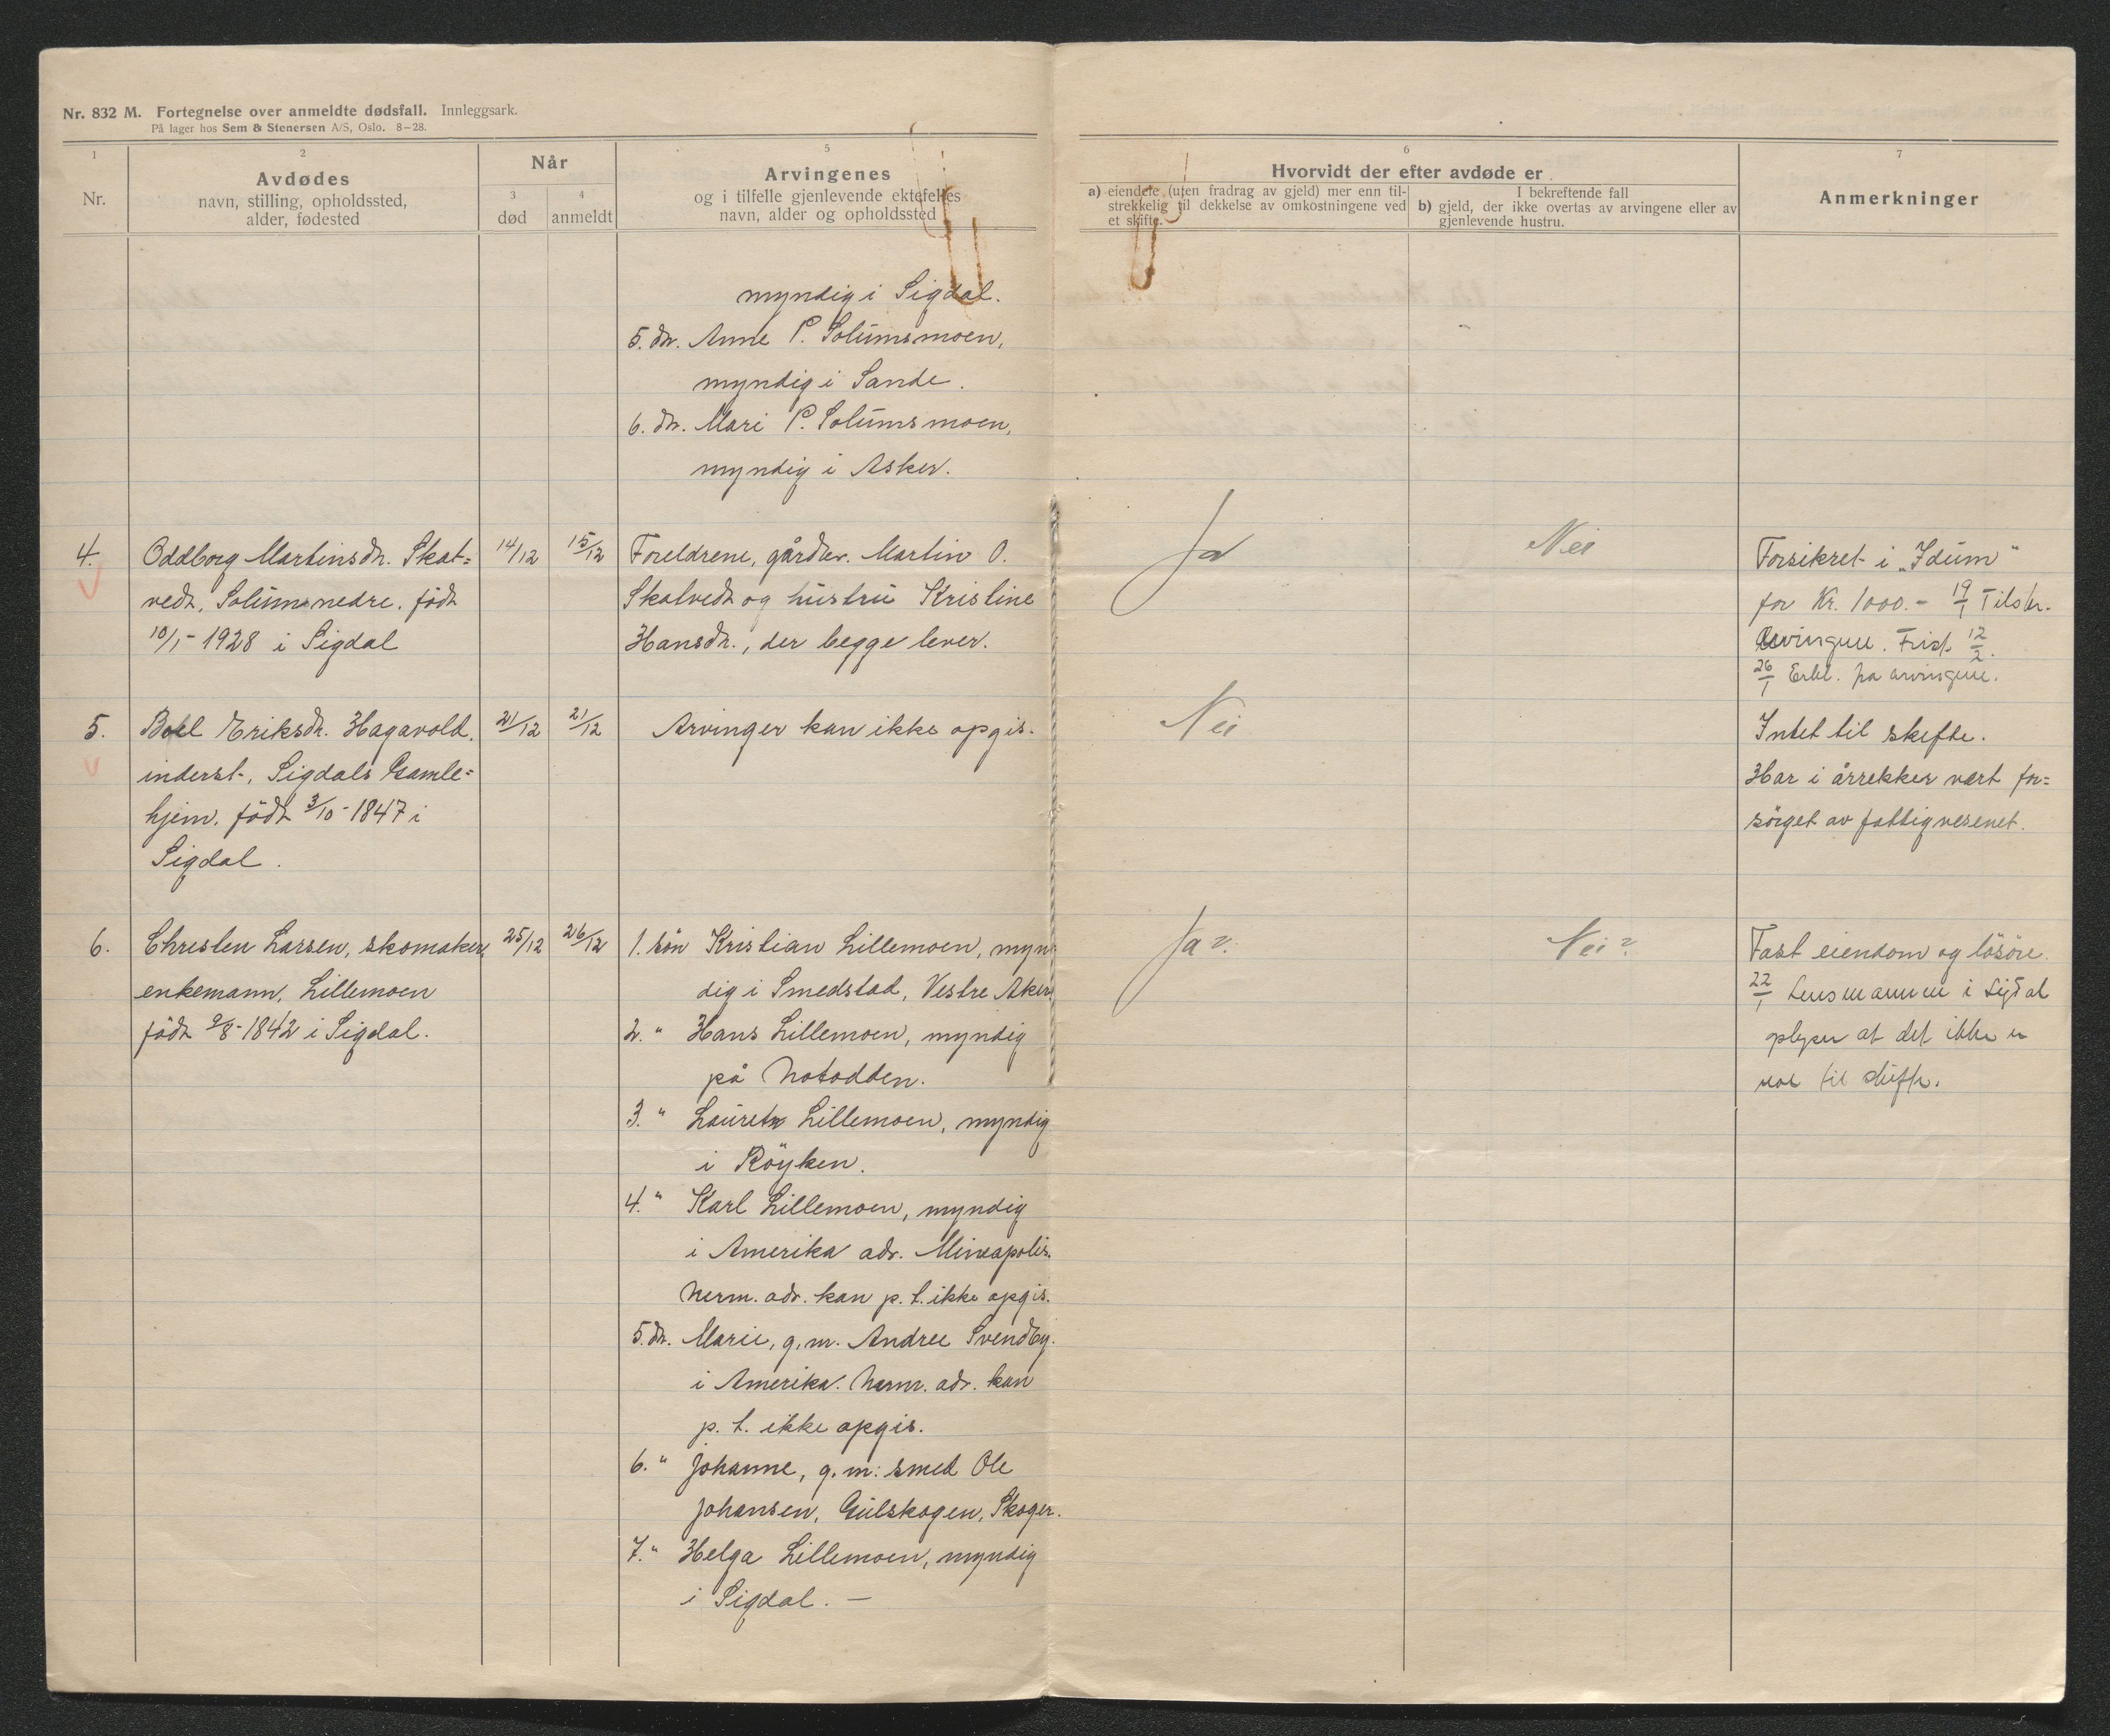 Nr. 832 M. Fortegnelse over anmeldte dødsfall. Innleggsark.
På lager hos Sem & Stenersen A/S, Oslo. 8–28.
1
Nr.
2
Avdødes
navn, stilling, opholdssted,
alder, fødested
Når
3
død
4
anmeldt
5
Arvingenes
og i tilfelle gjenlevende ektefelles
navn, alder og opholdssted
6
Hvorvidt der efter avdøde er
a) eiendele (uten fradrag av gjeld) mer enn til-
strekkelig til dekkelse av omkostningene ved
et skifte.
I bekreftende fall
b) gjeld, der ikke overtas av arvingene eller av
gjenlevende hustru.
7
Anmerkninger
myndig i Sigdal.
5. dr. Anne P. Solumsmoen,
myndig i Sande.
6. dr. Mari P. Solumsmoen,
myndig i Asker.
4.
Oddborg Martinsdr. Skat=
vedt, Solumsnedre. födt
10/1-1928 i Sigdal
14/12
15/12
Foreldrene, gårdbr. Martin O.
Skatvedt og hustru Kristine
Hansdr., der begge lever.
Ja
Nei
Forsikret i „Idum"
for Kr. 1000.- 19/1 Tilskr.
Arvingene. Frist 12/2.
26/1 Erkl. fra arvingene.
5.
Boel Eriksdr. Hagavold,
inderst, Sigdals Gamle=
hjem. födt 3/10-1847 i
Sigdal.
21/12
21/12
Arvinger kan ikke opgis.
Nei
Intet til skifte.
Har i årrekker vært for=
sörget av fattigvesenet.
6.
Christen Larsen, skomaker,
enkemann, Lillemoen
födt 9/8-1842 i Sigdal.
25/12
26/12
1. sön Kristian Lillemoen, myn
dig i Smedstad, Vestre Aker
2. " Hans Lillemoen, myndig
på Notodden.
3. " Lauretz Lillemoen, myndig
i Röyken.
4. " Karl Lillemoen, myndig
i Amerika adr. Mineapolis.
Nerm. adr. kan p. t. ikke opgis.
5. dr. Marie, g. m. Andree Svendby.
i Amerika. Nerm. adr. kan
p. t. ikke opgis.
6. " Johanne, g. m. smed Ole
Johansen, Gulskogen, Skoger.
7. " Helga Lillemoen, myndig
i Sigdal. —
Ja?
Nei?
Fast eiendom og lösöre.
22/1 Lensmannen i Sigdal
oplyser at det ikke er
noe til skifte.